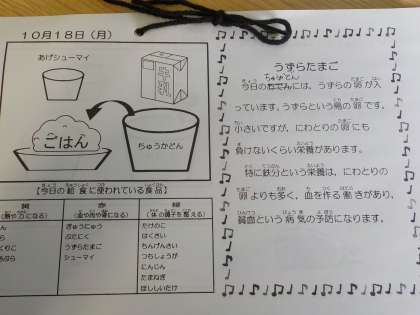 10月18日（月）
あげシューマイ
ごはん
ちゅうかどん
【今日の給食に使われている食品】
黄
赤
緑
（血や肉や骨になる）
（体の調子を整える）
ぎゅうにゅう
ぶたにく
うずらたまご
シューマイ
たけのこ
はくさい
ちんげんさい
つちしょうが
にんじん
たまねぎ
ほししいたけ
うずらたまご
ちゅうかどん
今日の
には、うずらの卵が入
っています。うずらという鳥の卵です。
小さいですが、にわとりの卵にも
負けないくらい栄養があります。
特に鉄分という栄養は、にわとりの
卵よりも多く、血を作る働きがあり、
貧血という病気の予防になります。